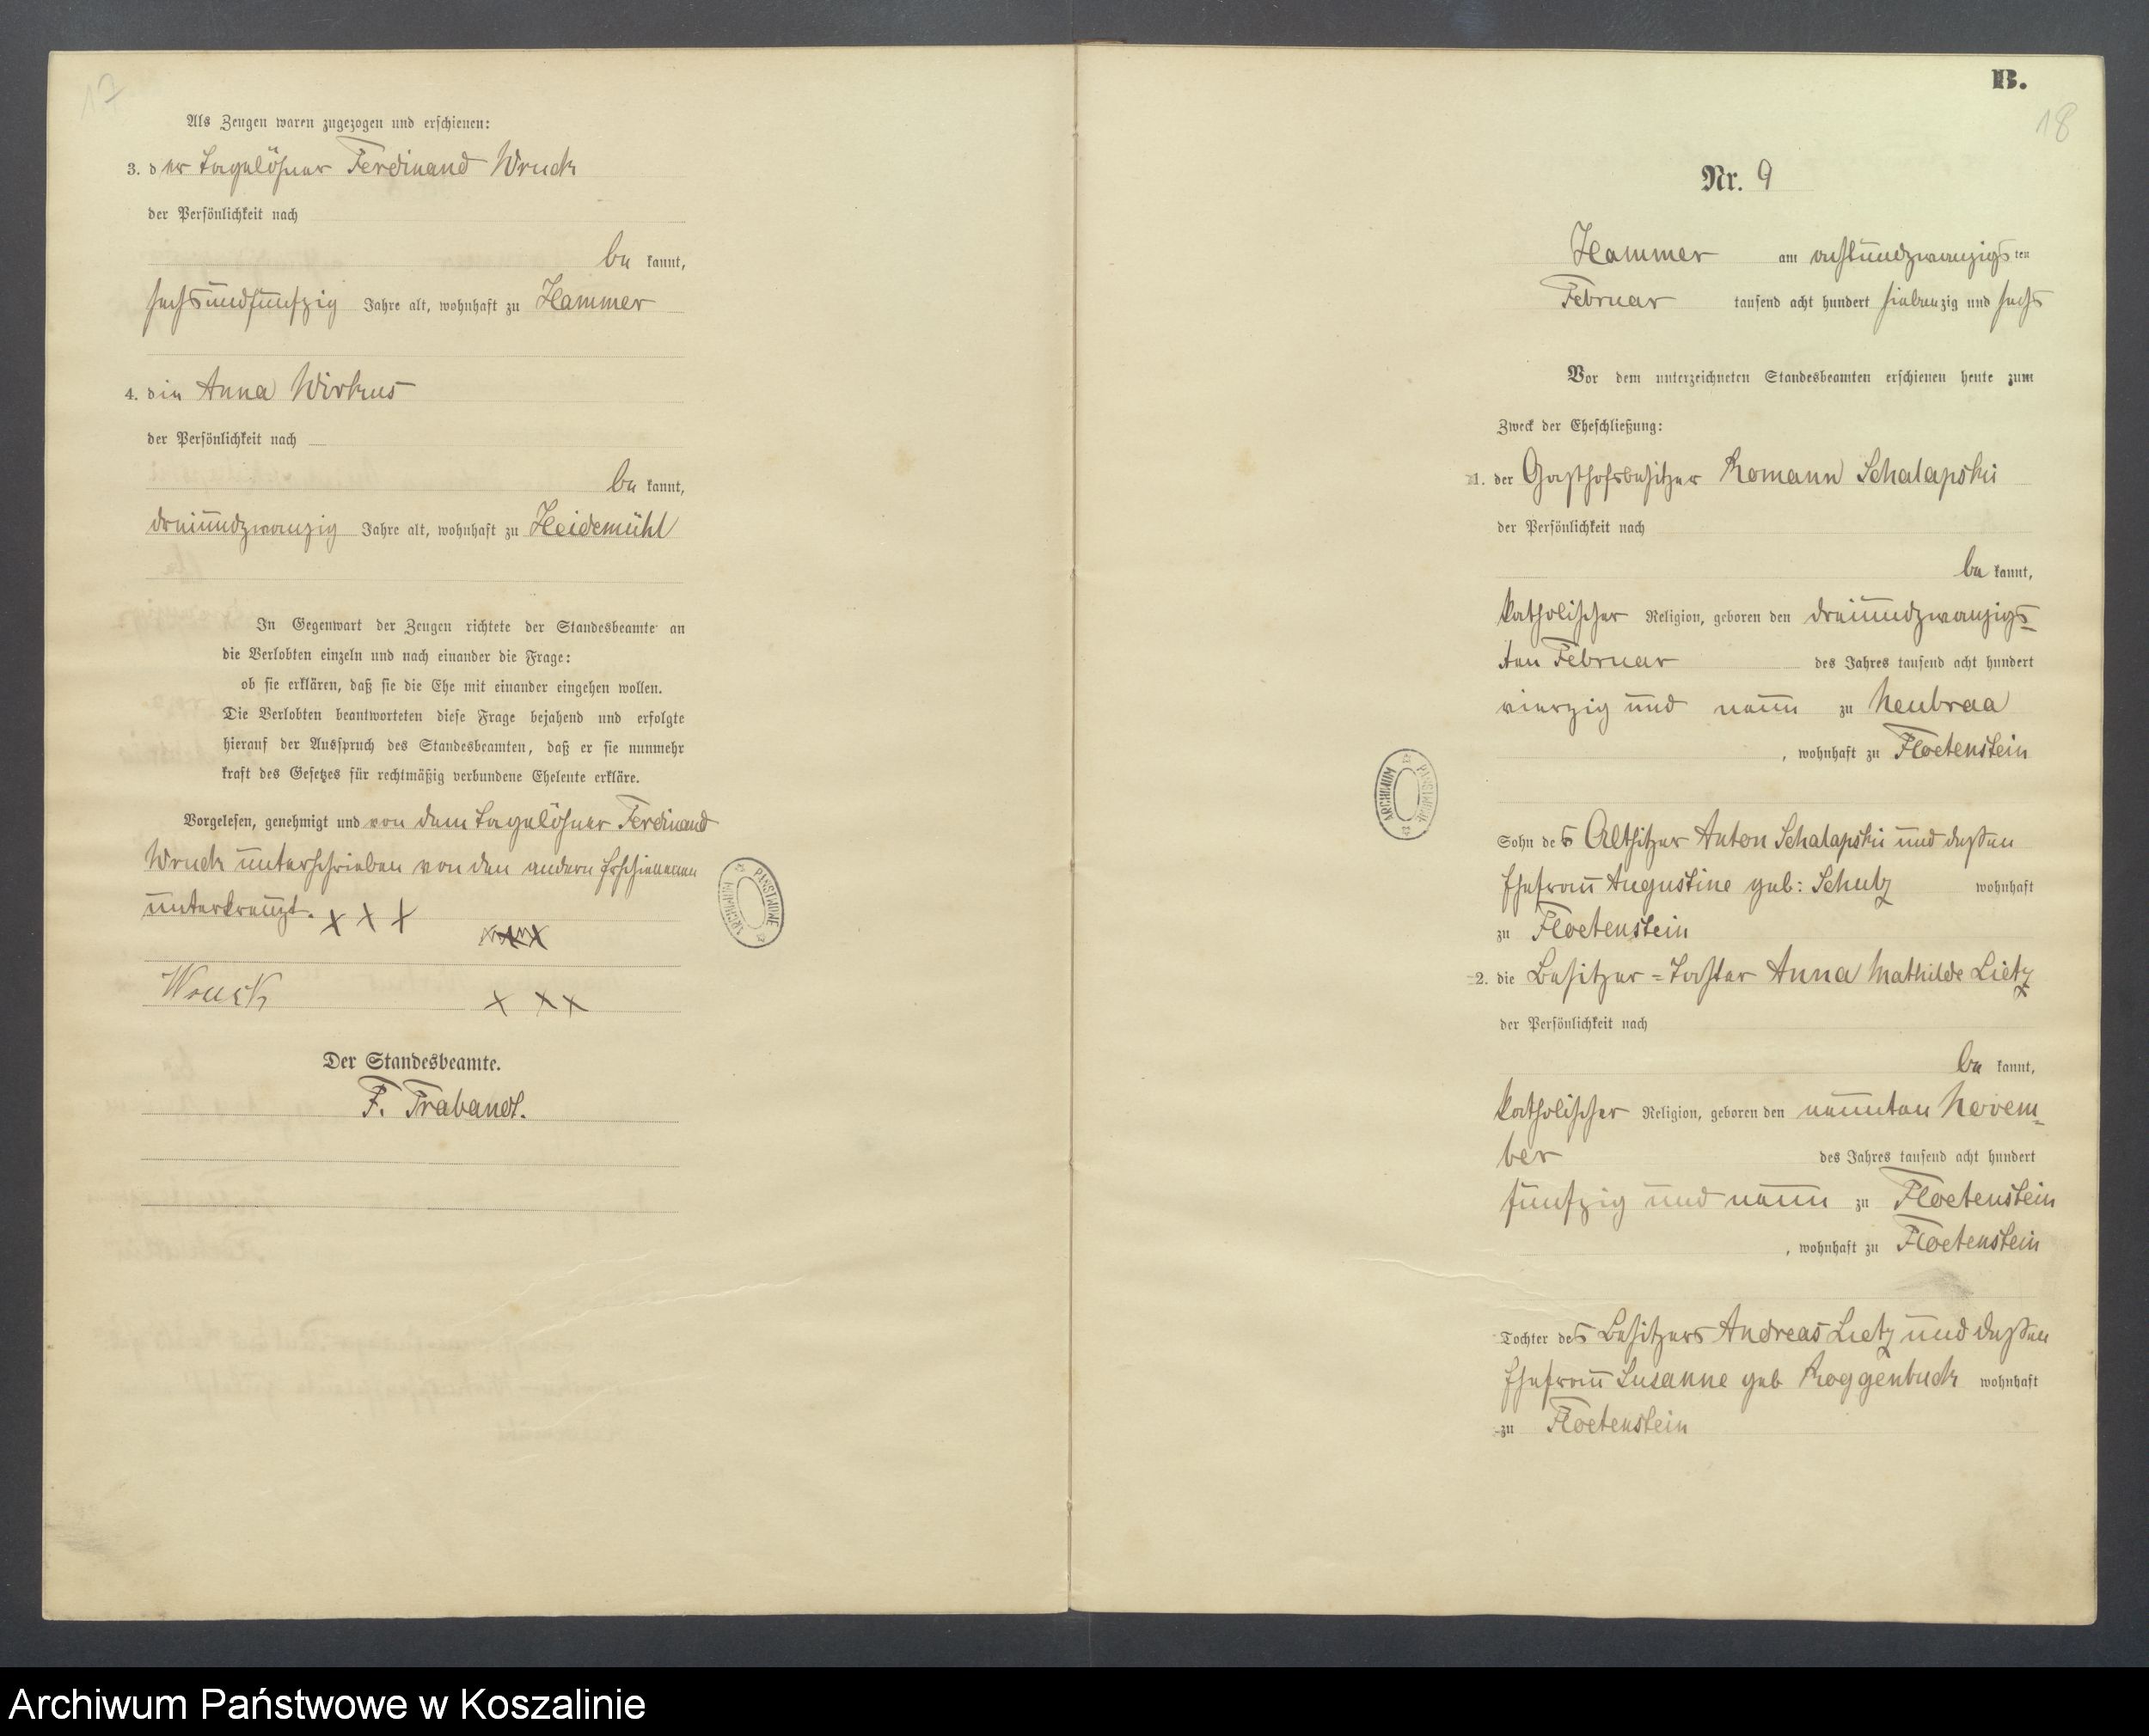 17
Als Zeugen waren zugezogen und erschienen:
3. der Tagelöhner Ferdinand Wruck
der Persönlichkeit nach
be kannt,
sechsundfunfzig Jahre alt, wohnhaft zu Hammer
4. die Anna Wirkus
der Persönlichkeit nach
be kannt,
dreiundzwanzig Jahre alt, wohnhaft zu Heidemühl
In Gegenwart der Zeugen richtete der Standesbeamte an
die Verlobten einzeln und nach einander die Frage:
ob sie erklären, daß sie die Ehe mit einander eingehen wollen.
Die Verlobten beantworteten diese Frage bejahend und erfolgte
hierauf der Ausspruch des Standesbeamten, daß er sie nunmehr
kraft des Gesetzes für rechtmäßig verbundene Eheleute erkläre.
Vorgelesen, genehmigt und von dem Tagelöhner Ferdinand
Wruck unterschrieben von den andern Erschienenen
unterkreuzt. X X X
Wruck X X X
Der Standesbeamte.
F. Trabandt.
ARCHIWUM PAŃSTWOWE
B.
18
Nr. 9
Hammer am achtundzwanzigsten
Februar tausend acht hundert siebenzig und sechs
Vor dem unterzeichneten Standesbeamten erschienen heute zum
Zweck der Eheschließung:
1. der Gasthofsbesitzer Romann Schalapski
der Persönlichkeit nach
be kannt,
katholischer Religion, geboren den dreiundzwanzigs-
ten Februar des Jahres tausend acht hundert
vierzig und neun zu Neubraa
, wohnhaft zu Floetenstein
Sohn des Altsitzer Anton Schalapski und dessen
Ehefrau Augustine geb: Schulz wohnhaft
zu Floetenstein
2. die Besitzer=Tochter Anna Mathilde Lietz
der Persönlichkeit nach
be kannt,
katholischer Religion, geboren den neunten Novem-
ber des Jahres tausend acht hundert
funfzig und neun zu Floetenstein
, wohnhaft zu Floetenstein
Tochter des Besitzers Andreas Lietz und dessen
Ehefrau Susanne geb Roggenbuck wohnhaft
zu Floetenstein
ARCHIWUM PAŃSTWOWE
Archiwum Państwowe w Koszalinie